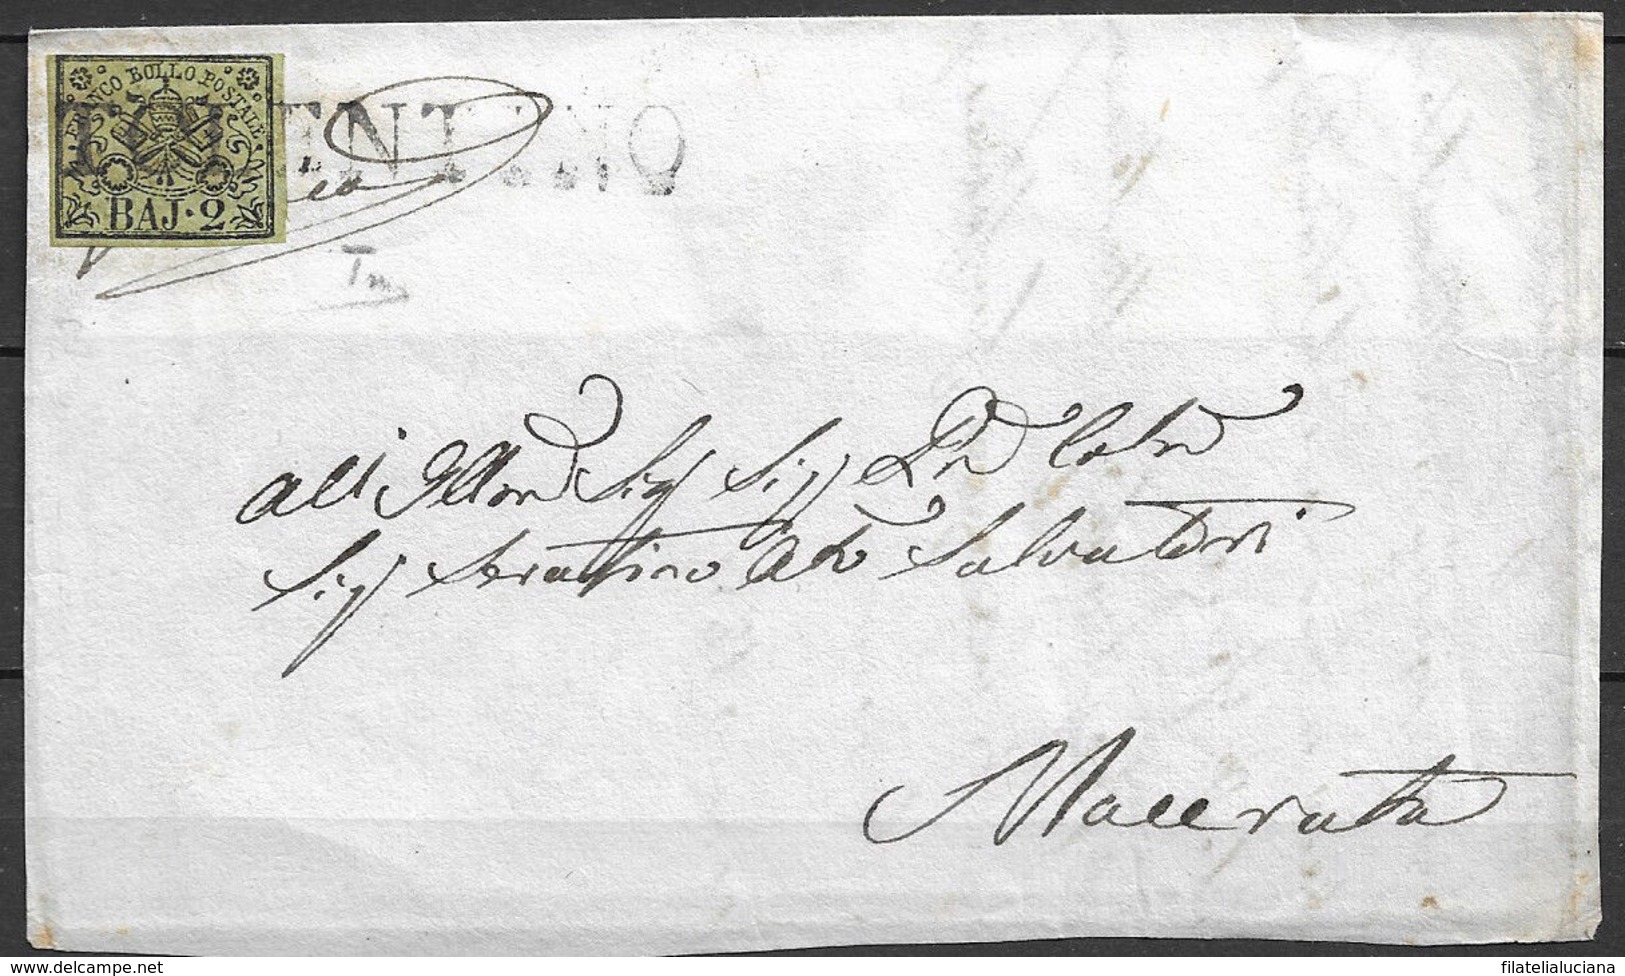 FRANCO BOLLO POSTALE
BAJ·2
TOLENTINO
All Sig Sig
Sig Serafino Salvatori
Macerata
delcampe.net
filatelialuciana